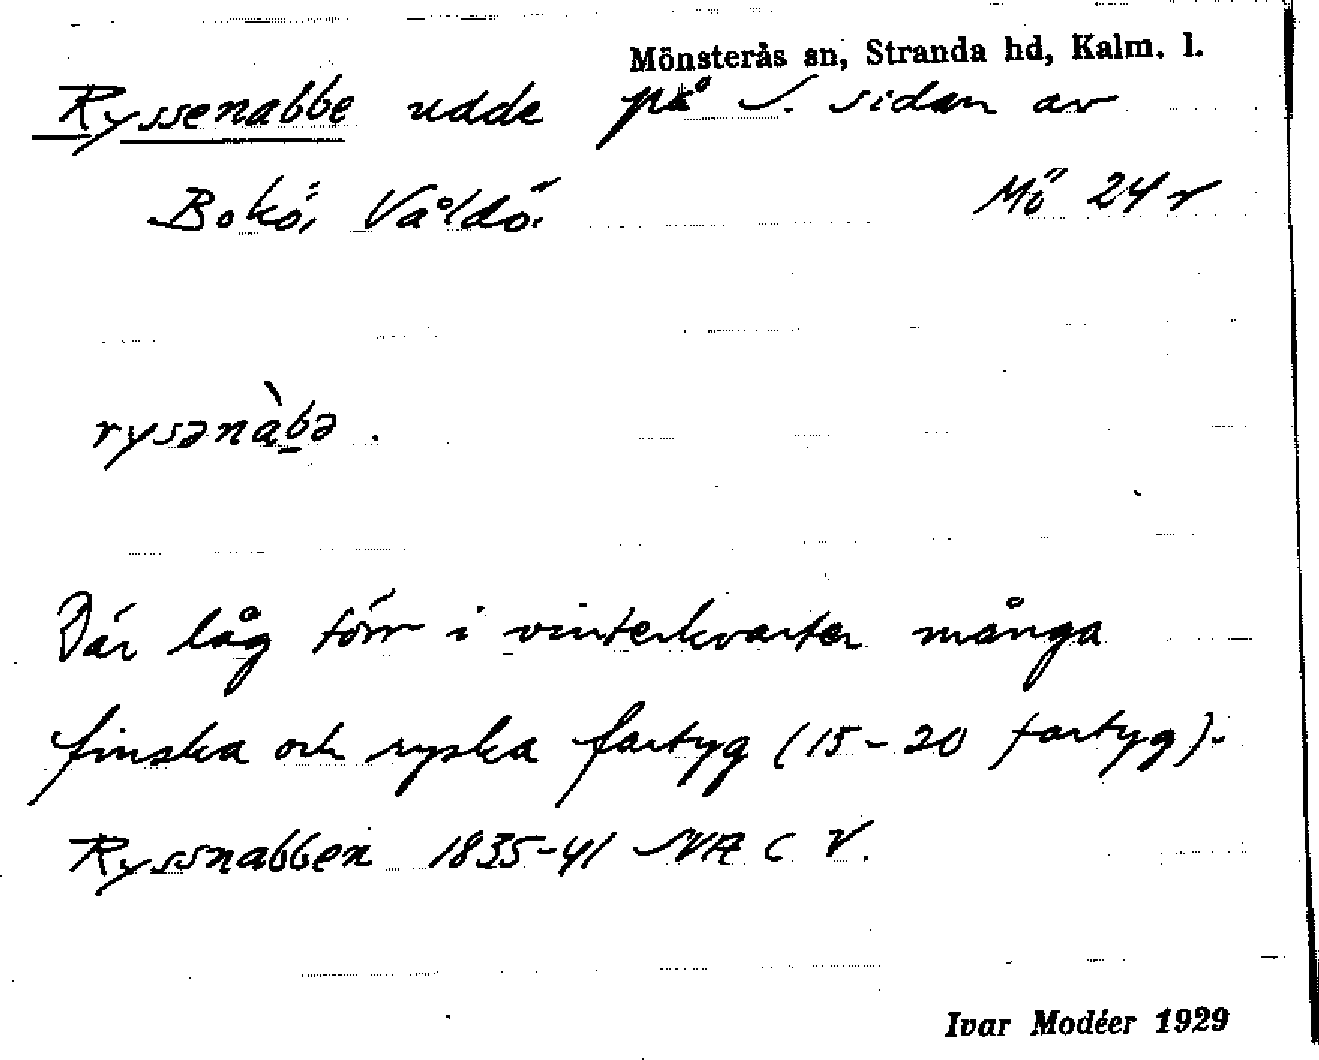 Mönsterås sn, Stranda hd, Kalm. l.
Ryssenabbe udde på S. sidan av
Bokö, Våldö. Mö 24 r
rysənàbə.
Där låg förr i vinterkvarter många
finska och ryska fartyg (15-20 fartyg).
Ryssnabben 1835-41 C V.
Ivar Modéer 1929